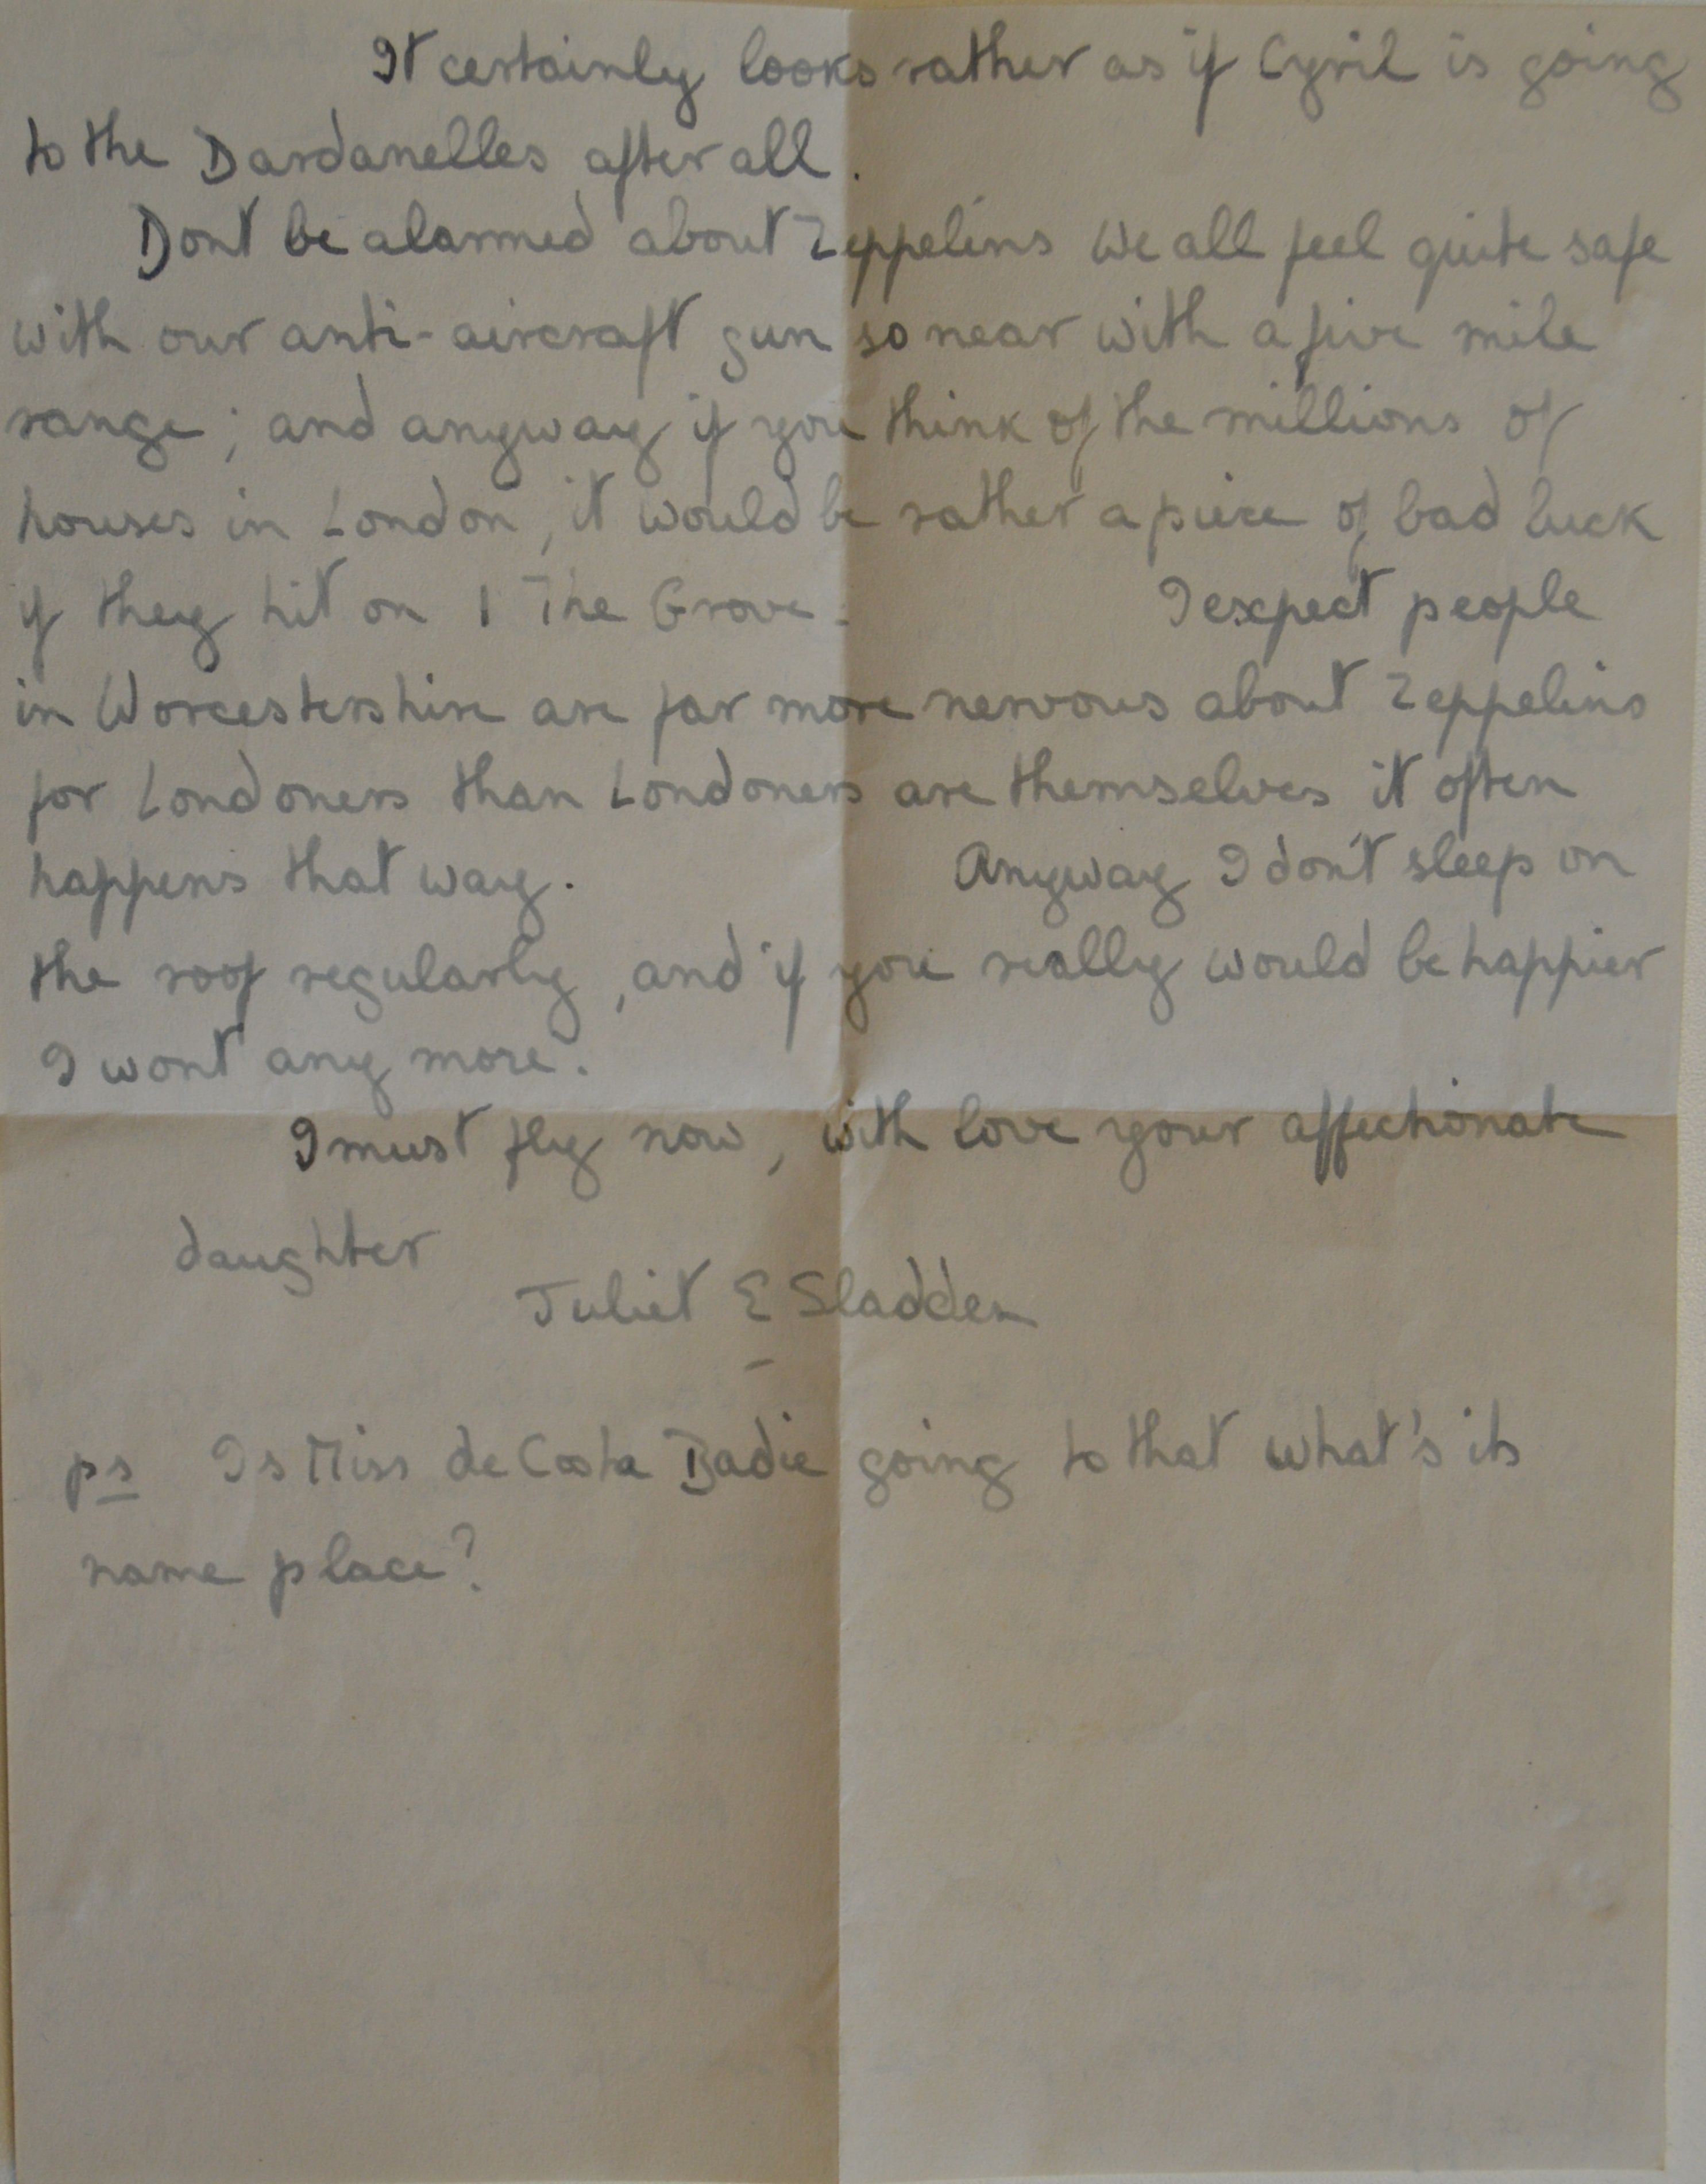 It certainly looks rather as if Cyril is going
to the Dardanelles after all.
Dont be alarmed about Zeppelins we all feel quite safe
with our anti-aircraft gun so near with a five mile
range; and anyway if you think of the millions of
houses in London, it would be rather a piece of bad luck
if they hit on 1 The Grove. I expect people
in Worcestershire are far more nervous about Zeppelins
for Londoners than Londoners are themselves it often
happens that way. Anyway I don't sleep on
the roof regularly, and if you really would be happier
I wont any more.
I must fly now, with love your affectionate
daughter
Juliet E Sladden
ps Is Miss de Costa Badie going to that what's its
name place?